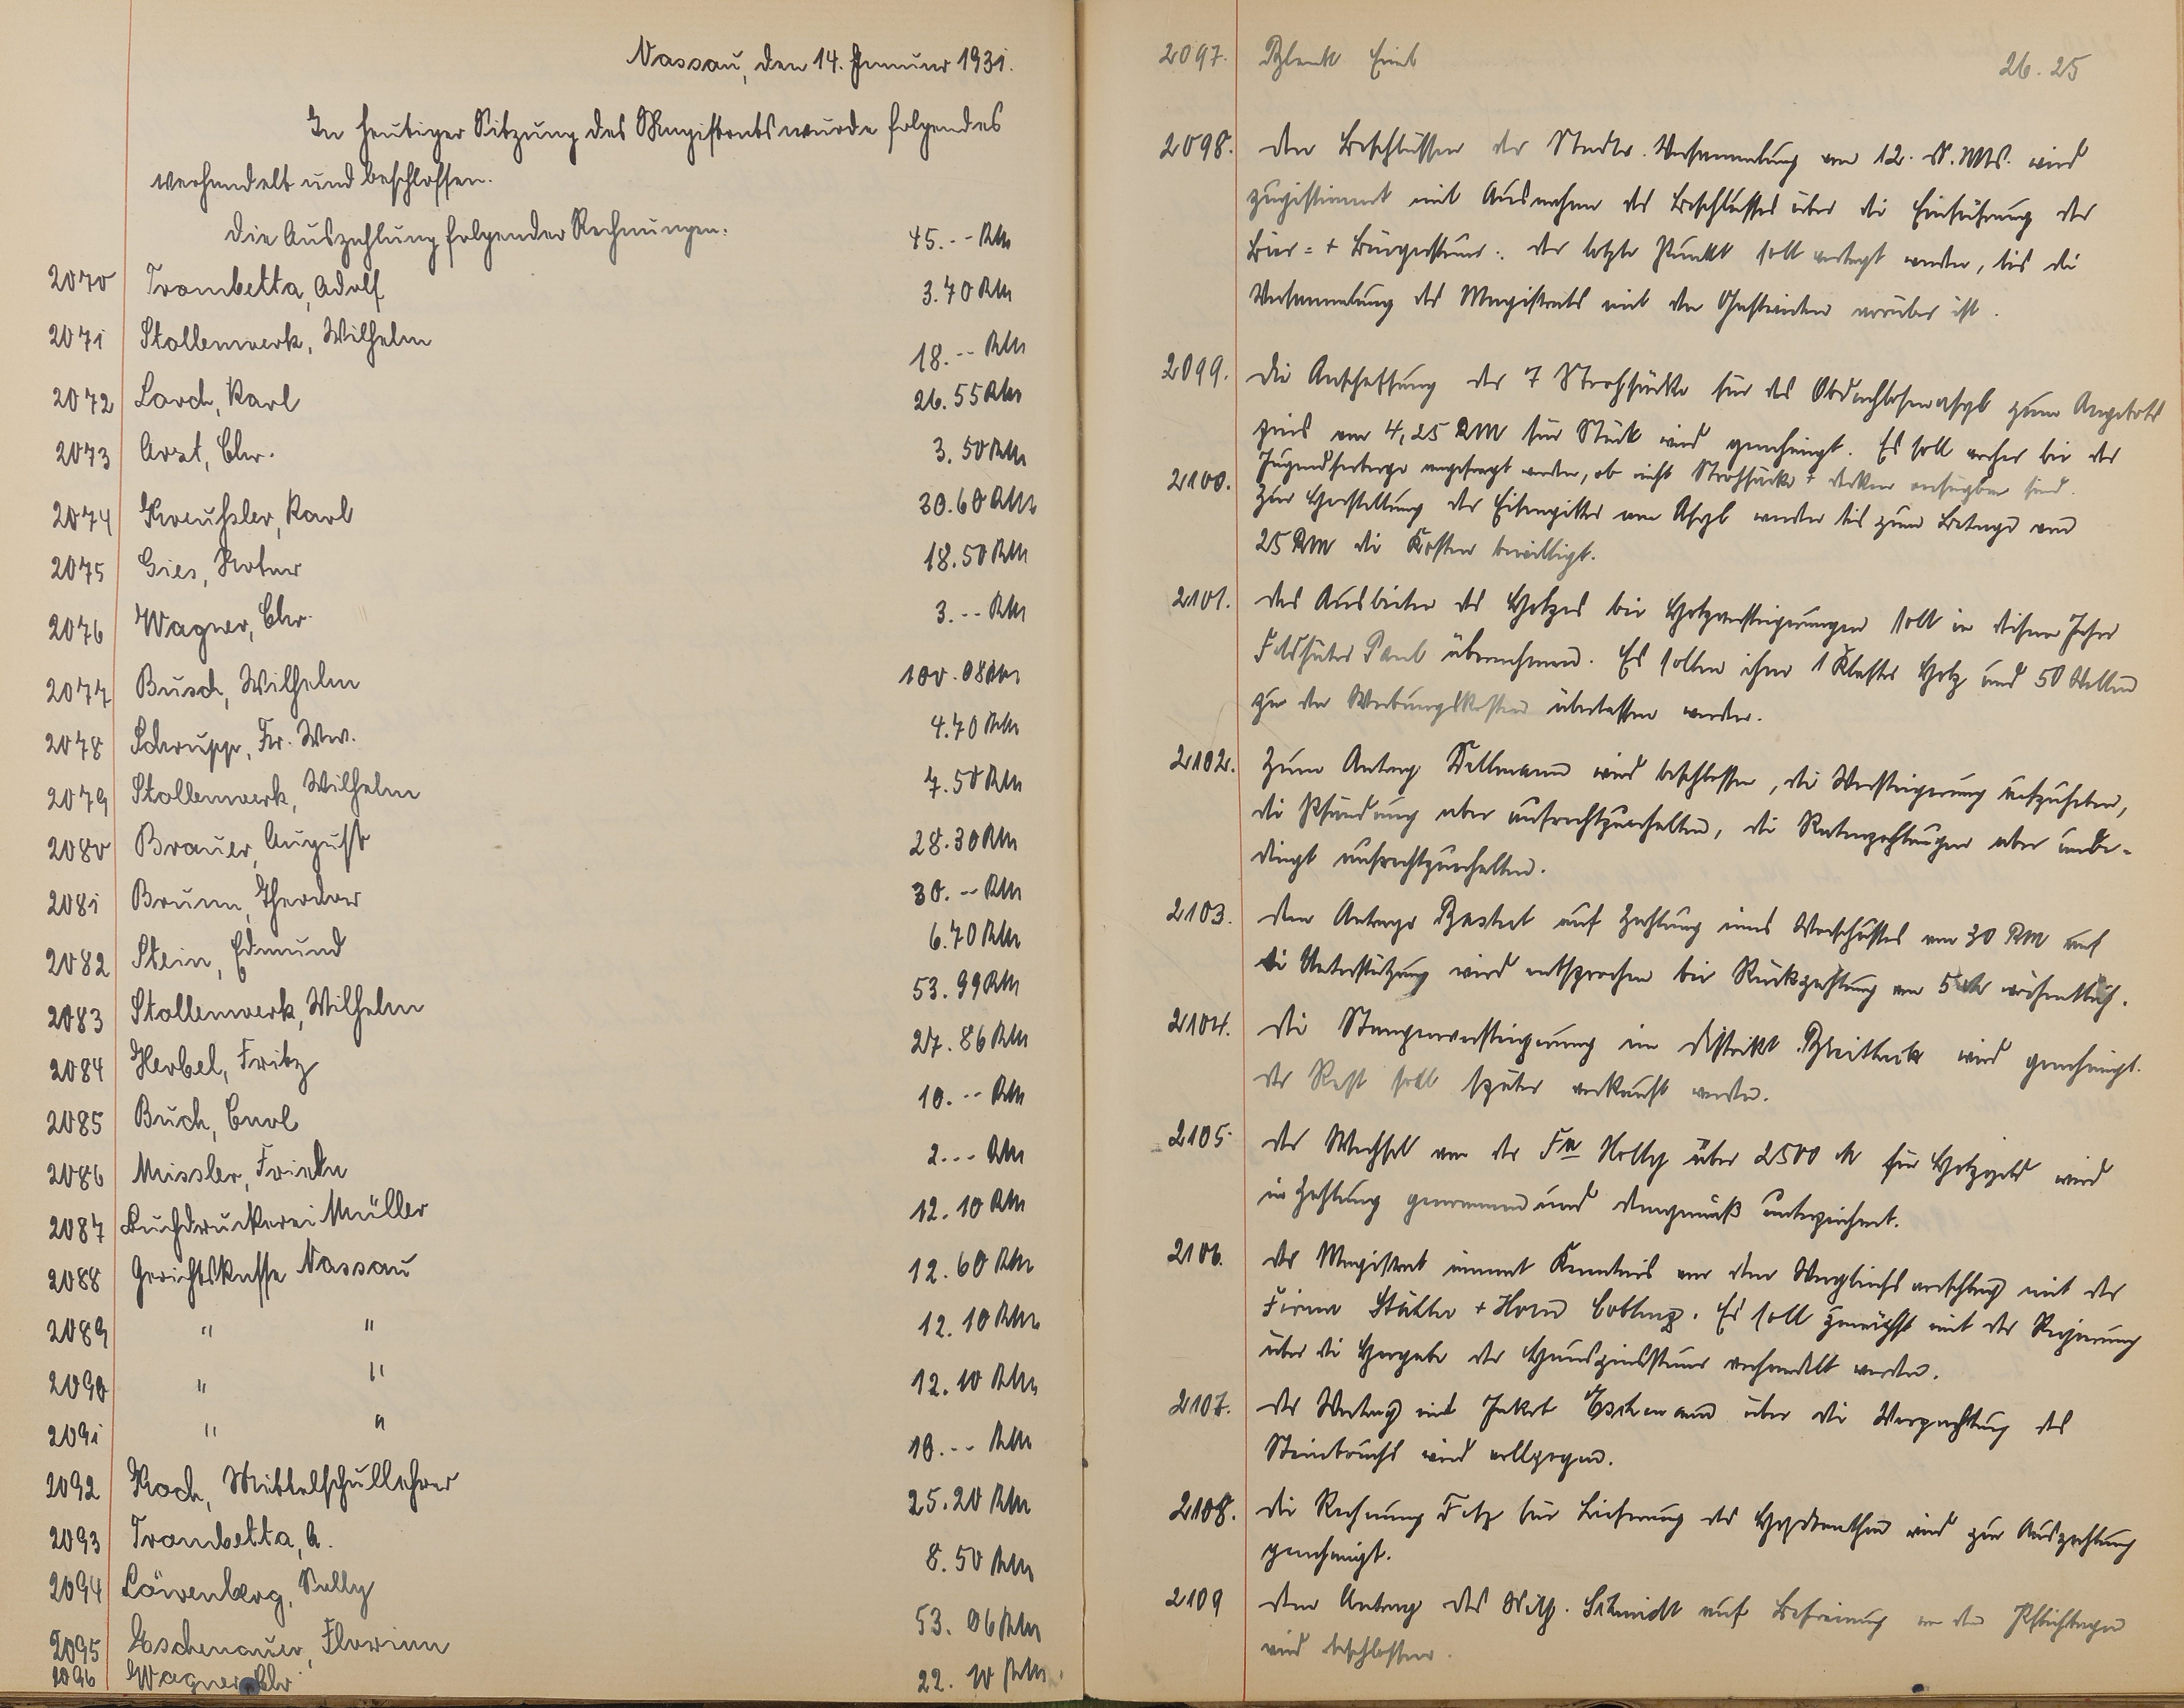 Nassau, den 14. Januar 1931.
In heutiger Sitzung des Magistrats wurde folgendes
verhandelt und beschlossen.
Die Auszahlung folgender Rechnungen:
2070 Trombetta, Adolf 45.-- RM
2071 Stollenwerk, Wilhelm 3.70 RM
2072 Lorch, Karl 18.-- RM
2073 Arzt, Chr. 26.55 RM
2074 Kreußler, Karl 3.50 RM
2075 Gies, 30.60 RM
2076 Wagner, Chr. 18.50 RM
2077 Busch, Wilhelm 3.-- RM
2078 Schrupp, Fr. Ww. 100.08 RM
2079 Stollenwerk, Wilhelm 4.70 RM
2080 Brauer, August 7.50 RM
2081 Brunn, Theodor 28.30 RM
2082 Stein, Edmund 30.-- RM
2083 Stollenwerk, Wilhelm 6.70 RM
2084 Herbel, Fritz 53.99 RM
2085 Buch, Carl 27.86 RM
2086 Missler, Frieda 10.-- RM
2087 Buchdruckerei Müller 2.-- RM
2088 Gerichtskasse Nassau 12.10 RM
2089 " " 12.60 RM
2090 " " 12.10 RM
2091 " " 12.10 RM
2092 Koch, Mittelschullehrer 10.-- RM
2093 Trombetta, A. 25.20 RM
2094 Löwenberg, Sally 8.50 RM
2095 Eschenauer, Florian 53.06 RM
2096 Wagner Chr 22.10 RM.
2097. Blank Emil 26.25
2098. Den Beschlüssen der Stadtv. Versammlung vom 12. d. Mts. wird
zugestimmt mit Ausnahme des Beschlusses über die Einführung der
Bier= + Bürgersteuer. Der letzte Punkt soll vertagt werden, bis die
Versammlung des Magistrats mit den Gastwirten vorüber ist.
2099. Die Anschaffung der 7 Strohsäcke für das Obdachlosenasyl zum Angebots
preis von 4,25 RM für Stück wird genehmigt. Es soll vorher bei der
Jugendherberge angefragt werden, ob nicht Strohsäcke + Decken verfügbar sind.
2100. Zur Herstellung der Eisengitter am Asyl werden bis zum Betrage von
25 RM die Kosten bewilligt.
2101. Das Ausbieten des Holzes bei Holzversteigerungen soll in diesem Jahre
Feldhüter Paul übernehmen. Es sollen ihm 1 Klafter Holz und 50 Wellen
zu den Werbungskosten überlassen werden.
2102. Zum Antrag wird beschlossen, die Versteigerung aufzuheben,
die Pfändung aber aufrechtzuerhalten, die Ratenzahlungen aber unbe-
dingt aufrechtzuerhalten.
2103. Dem Antrage auf Zahlung eines Vorschusses von 30 RM auf
die Unterstützung wird entsprochen bei Rückzahlung von 5 M wöchentlich.
2104. Die Stangenversteigerung im Distrikt wird genehmigt.
Der Rest soll später verkauft werden.
2105. Der Wechsel von der Fa über 2500 M für Holzgeld wird
in Zahlung genommen und demgemäß unterzeichnet.
2106. Der Magistrat nimmt Kenntnis von dem Vergleichsvorschlag mit der
Firma Stähler + Horn Coblenz. Es soll zunächst mit der Regierung
über die Hergabe der Hauszinssteuer verhandelt werden.
2107. Der Vertrag mit Jakob über die Verpachtung des
Steinbruchs wird vollzogen.
2108. Die Rechnung für Lieferung des Hydranten wird zur Auszahlung
genehmigt.
2109 Dem Antrag des Wilh. Schmidt auf Befreiung von den Pflichttagen
wird beschlossen.